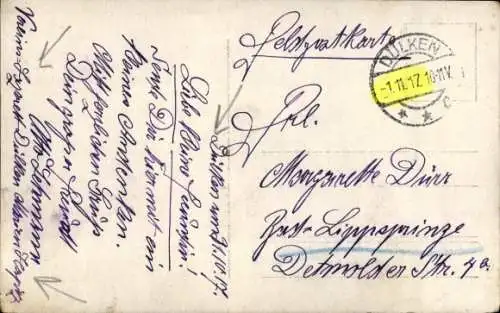 Feldpostkarte
DÜLKEN
-1.11.17. 10-11V.
* * c
Frl.
Margarette Dürr
Bad-Lippspringe
Detmolder Str. 4a.
Dülken am 31.10.17.
Liebe kleine Freundin!
Sende Dir hiermit ein
kleines Andenken.
Mit herzlichen Gruß
Dein
Otto Lehmann
Vereins-Lazarett-Dülken